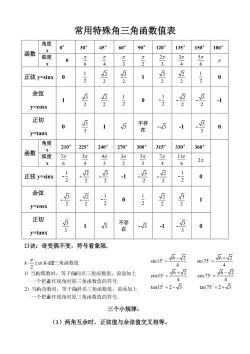 常用特殊角三角函数值表
函数 角度 x 0° 30° 45° 60° 90° 120° 135° 150° 180°
弧度 x 0 π/6 π/4 π/3 π/2 2π/3 3π/4 5π/6 π
正弦 y=sinx 0 1/2 √2/2 √3/2 1 √3/2 √2/2 1/2 0
余弦 y=cosx 1 √3/2 √2/2 1/2 0 -1/2 -√2/2 -√3/2 -1
正切 y=tanx 0 √3/3 1 √3 不存在 -√3 -1
函数 角度 x 210° 225° 240° 270° 300° 315° 330° 360°
弧度 x 7π/6 5π/4 4π/3 3π/2 5π/3 7π/4 2π
正弦 y=sinx -1/2 -√2/2 -√3/2 -1 -√3/2 -√2/2 -1/2 0
余弦 y=cosx -√3/2 -√2/2 -1/2 0 1/2 √2/2 √3/2 1
正切 y=tanx √3/3 1 √3 不存在 -√3 -1 0
口诀：奇变偶不变，符号看象限.
三角函数值
1) 当k偶数时，等于α的同名三角函数值，前面加上
一个把α看作锐角时原三角函数值的符号.
2) 当k奇数时，等于α的异名三角函数值，前面加上
一个把α看作锐角时原三角函数值的符号.
sin15°=(√6-√2)/4 sin75°=(√6+√2)/4
cos15°=(√6+√2)/4 cos75°=(√6-√2)/4
tan15°=2-√3 tan75°=2+√3
三个小规律：
（1）两角互余时，正弦值与余弦值交叉相等。